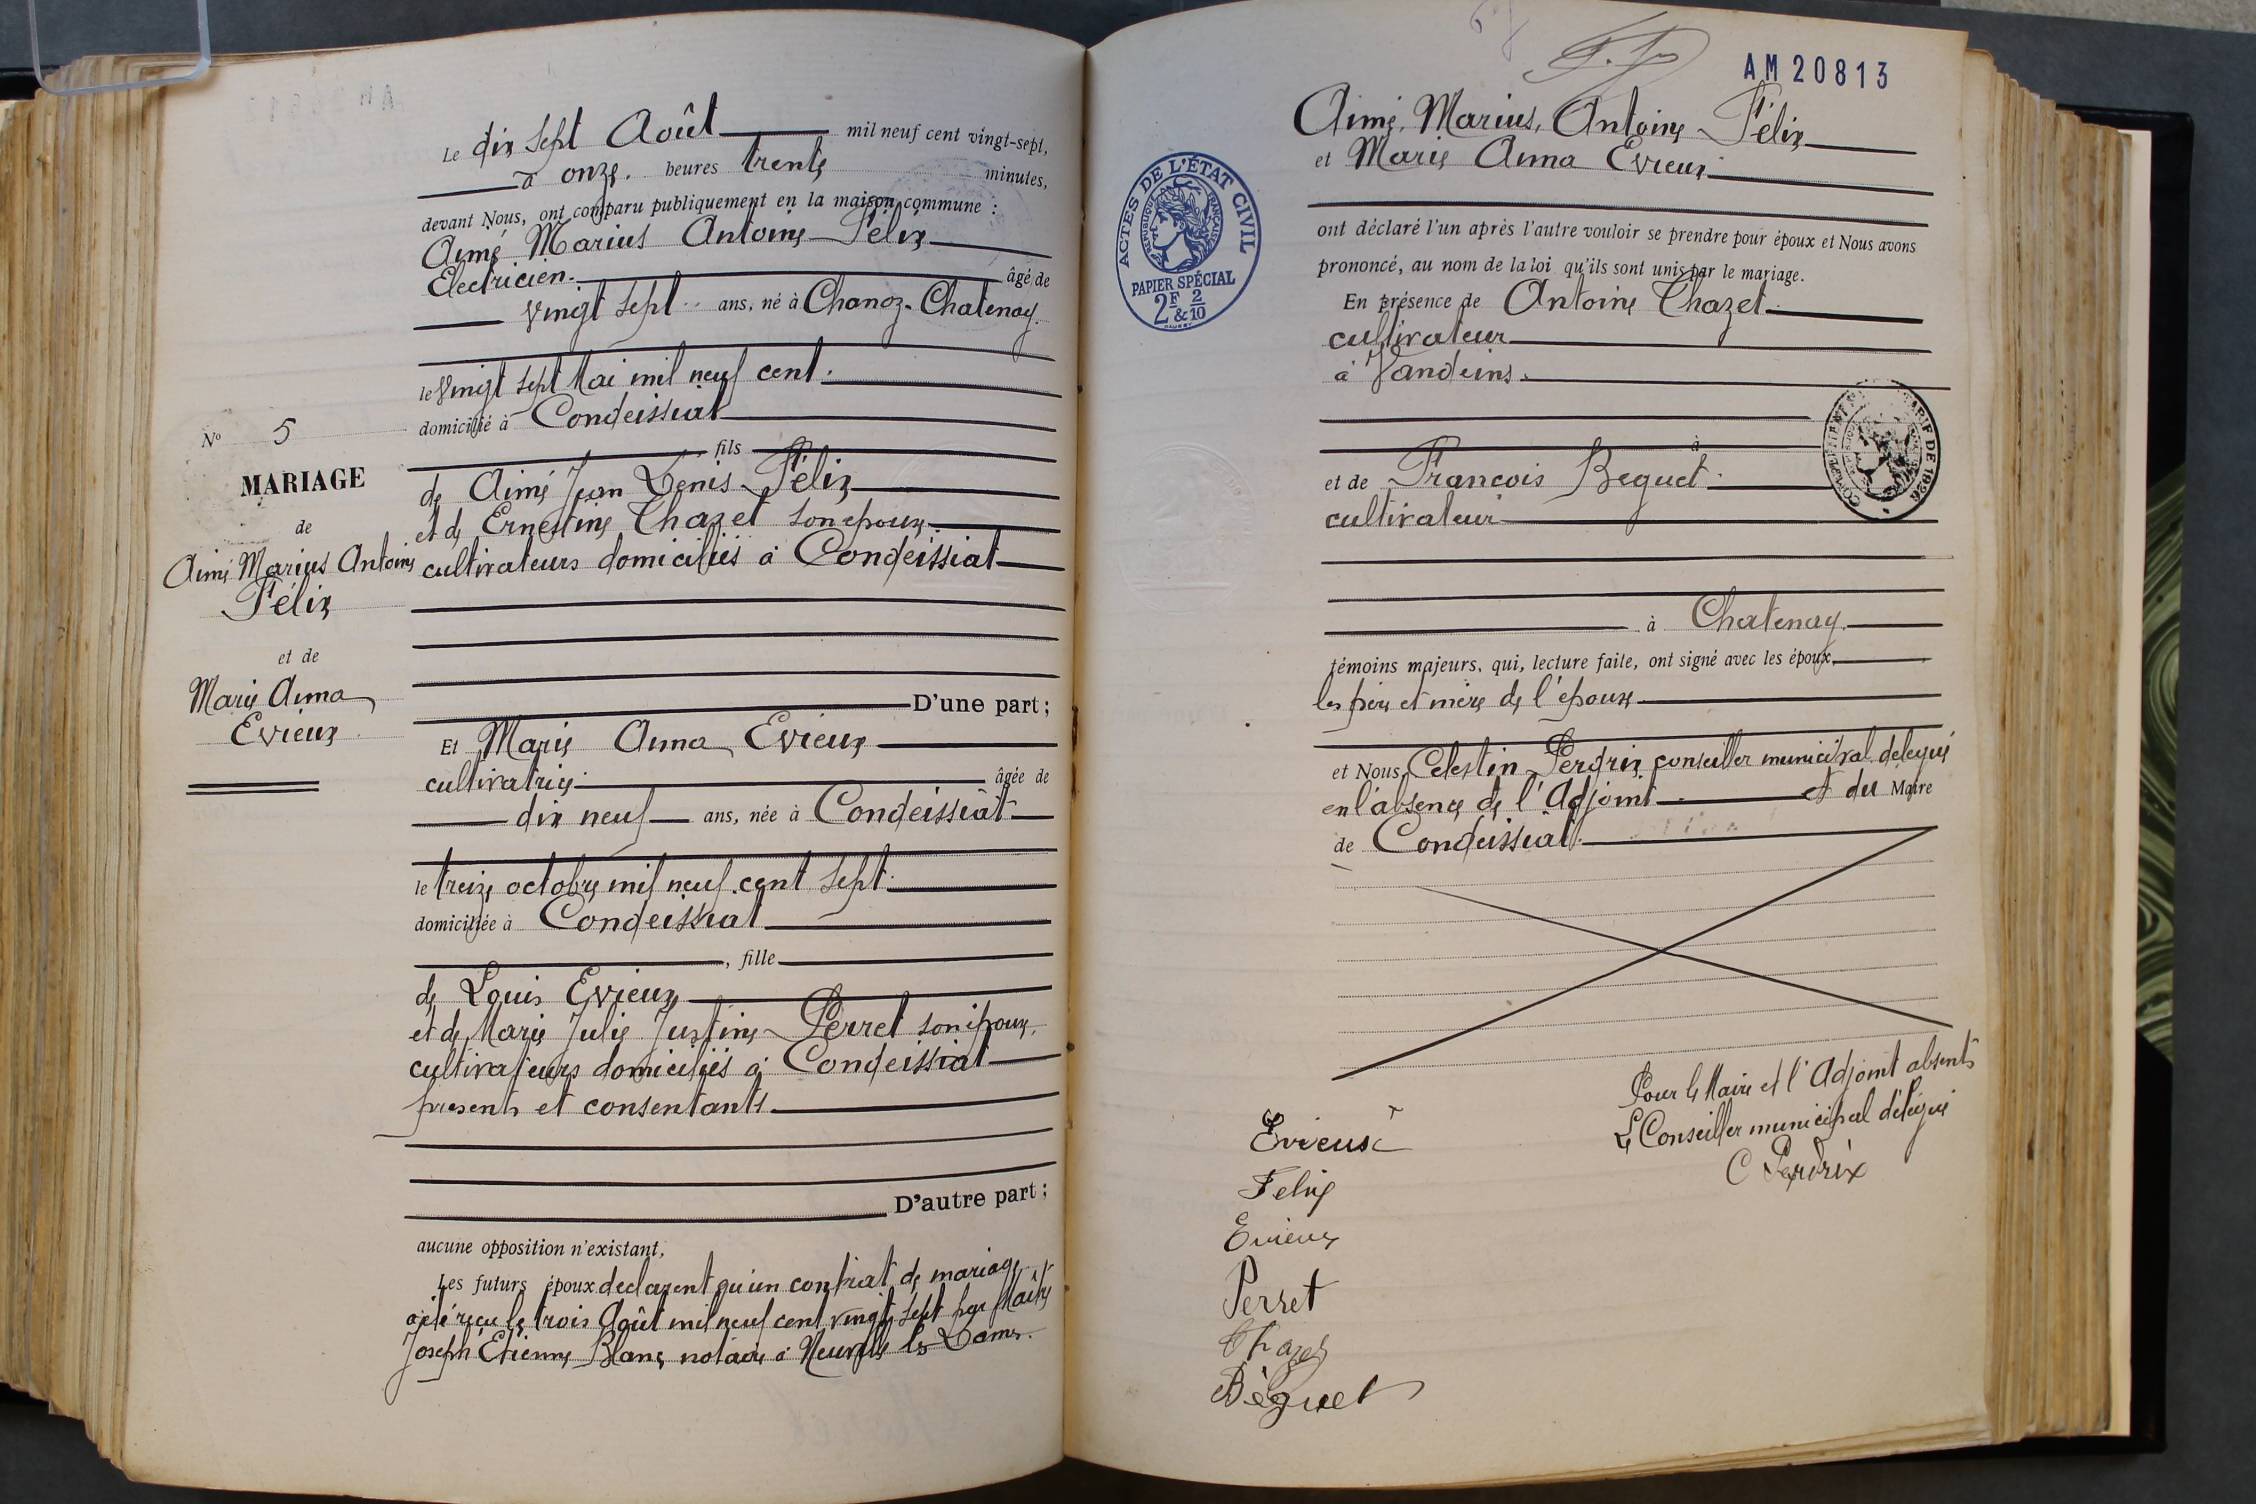 Nº 5
MARIAGE
de
Aimé Marius Antoine
Félix
et de
Marie Anna
Evieux
Le dix sept Août mil neuf cent vingt-sept,
à onze heures trente minutes,
devant Nous, ont comparu publiquement en la maison commune :
Aimé Marius Antoine Félix
Electricien. âgé de
vingt sept ans, né à Chanoz-Chatenay
le vingt sept Mai mil neuf cent.
domicilié à Condeissiat
fils
de Aimé Jean Denis Félix
et de Ernestine Chazet son epouse
cultivateurs domiciliés à Condeissiat
D'une part ;
Et Marie Anna Evieux
cultivatrice âgée de
dix neuf ans, née à Condeissiat
le treize octobre mil neuf cent sept.
domiciliée à Condeissiat
, fille
de Louis Evieux
et de Marie Julie Justine Perret son epouse
cultivateurs domiciliés à Condeissiat
presents et consentants
D'autre part ;
aucune opposition n'existant,
Les futurs époux declarent qu'un contrat de mariage
a été reçu le trois Août mil neuf cent vingt sept par Maître
Joseph Etienne Blanc notaire à Neuville les Dames.
AM20813
Aimé, Marius, Antoine Félix
et Marie Anna Evieux
ACTES DE L'ÉTAT CIVIL
RÉPUBLIQUE FRANÇAISE
PAPIER SPÉCIAL
2F & 2/10
ont déclaré l'un après l'autre vouloir se prendre pour époux et Nous avons
prononcé, au nom de la loi qu'ils sont unis par le mariage.
En présence de Antoine Chazet
cultivateur
à Vandeins.
à
et de François Beguet
TARIF DE 1926
cultivateur
à Chatenay
témoins majeurs, qui, lecture faite, ont signé avec les époux
les père et mère de l'épouse
et Nous, Celestin Perdrix conseiller municipal delegué
en l'absence de l'Adjoint et du Maire
de Condeissiat
Pour le Maire et l'Adjoint absents
Le Conseiller municipal délégué
C Perdrix
Evieux
Felix
Evieux
Perret
Chazet
Béguet